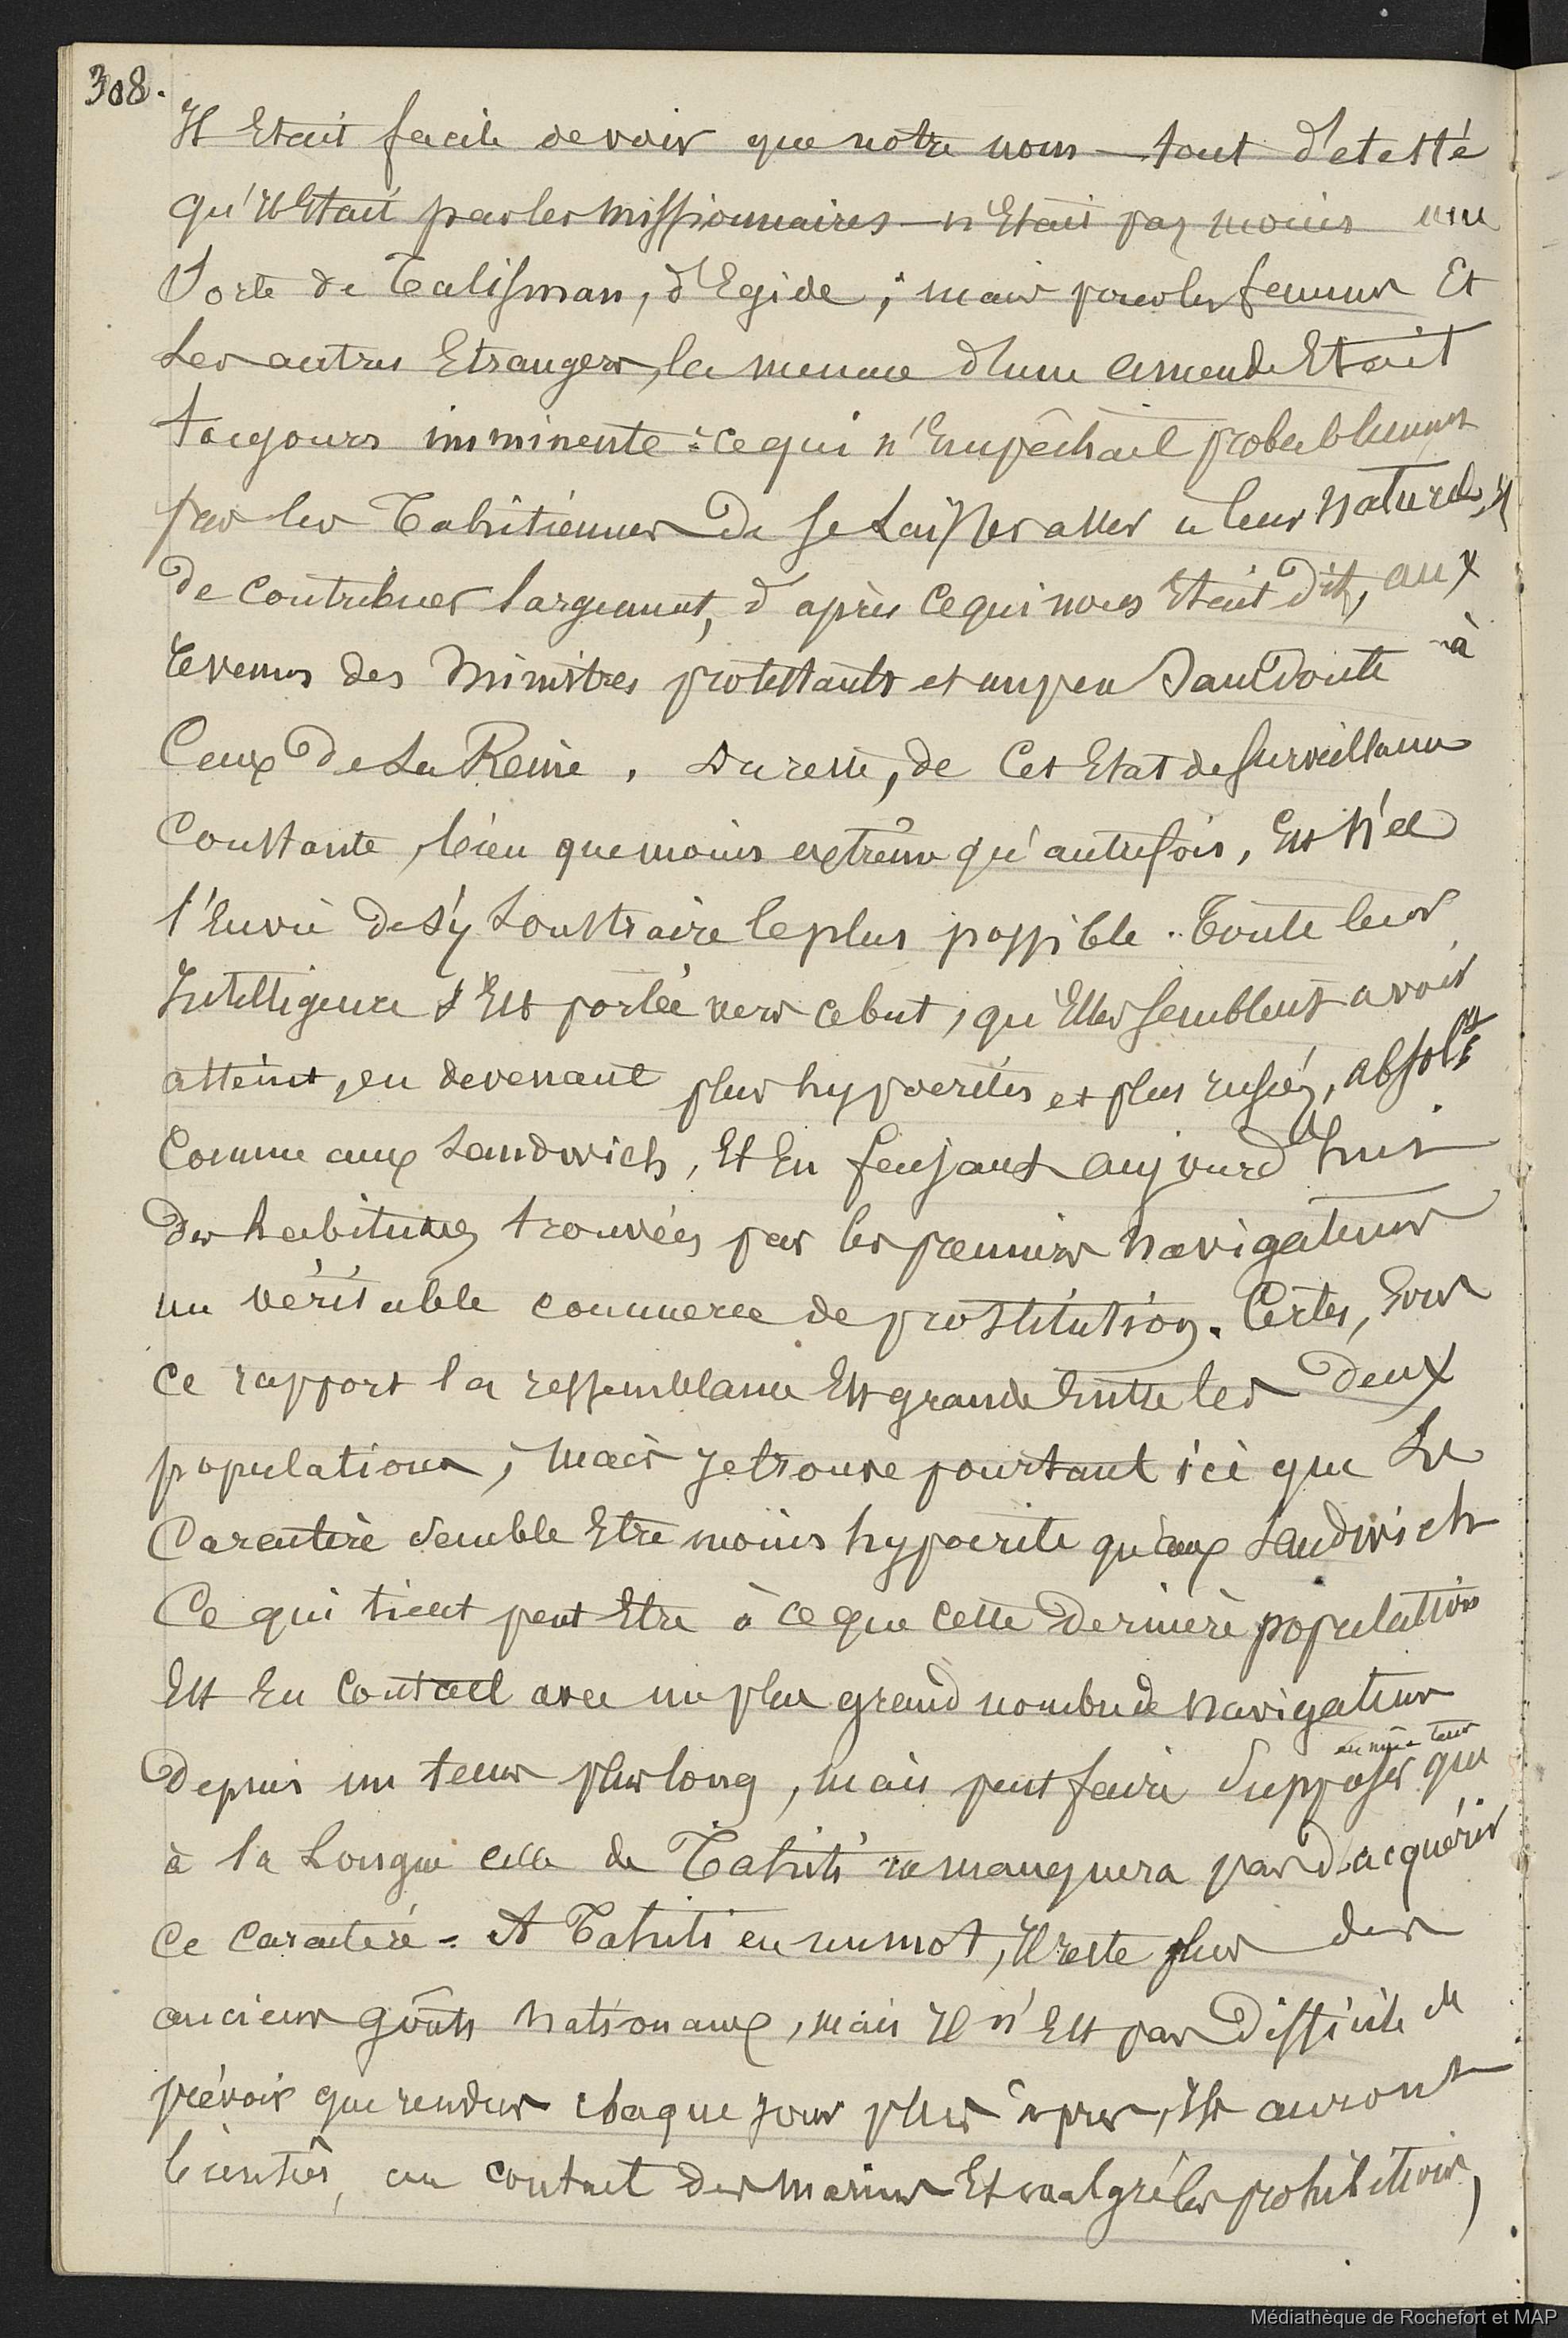 308.
Il Etait facile de voir que notre nom — tout d'etesté
qu'il Etait par les missionnaires — n'Etait pas moins une
Sorte de Talisman, d'Egide ; mais pour les femmes Et
Les autres Etrangers, la menace d'une amende Etait
toujours imminente : ce qui n'Empêchait probablement
pas les Tahitiennes de se Laisser aller a leur naturel, Et
de Contribuer largement, d'après Ce qui nous Etait dit, aux
revenus des Ministres protestants et un peu Sans doute à
Ceux de La Reine. Du reste, de Cet Etat de surveillance
Constante, bien que moins extrême qu'autrefois, Est née
l'Envie de s'y Soustraire le plus possible. Toute leur
Intelligence s'Est portée vers ce but, qu'Elles semblent avoir
atteint, en devenant plus hypocrites et plus rusées, absolt
Comme aux Sandwich, Et En faisant aujourd'hui
des habitudes trouvées par les premiers navigateurs
un véritable commerce de prostitution. Certes, sous
Ce rapport la ressemblance Est grande Entre les deux
populations, mais je trouve pourtant ici que Le
Caractère semble Etre moins hypocrite qu'aux Sandwich
Ce qui tient peut Etre à ce que cette dernière population
Est En Contact avec un plus grand nombre de navigateurs
au même tems
depuis un tems plus long, mais peut faire Supposer que
à la Longue celle de Tahiti ne manquera pas d'acquérir
Ce Caractère. A Tahiti en un mot, Il reste plus des
anciens goûts nationaux, mais Il n'Est pas difficile de
prévoir que rendus chaque jour plus âpres, Ils auront
bientôt, au contact des marins Et malgré les prohibitions,
Médiathèque de Rochefort et MAP